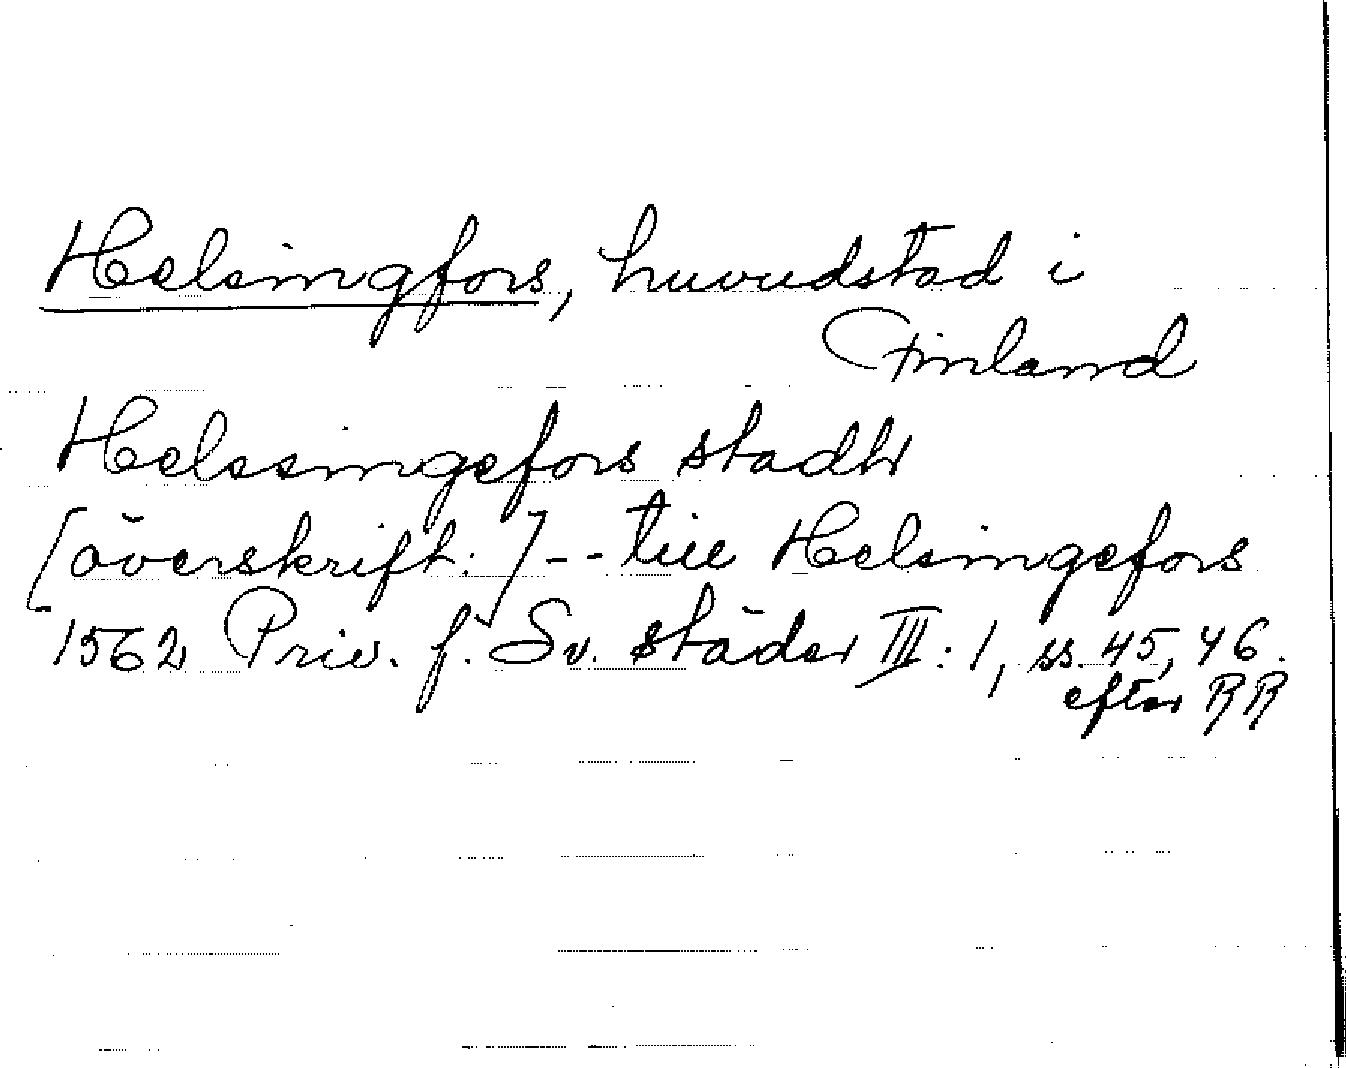 Helsingfors, huvudstad i
Finland
Helssingefors stadh
[överskrift:] -- till Helsingefors
1562 Priv. f. Sv. städer III: 1, ss. 45, 46.
efter RR